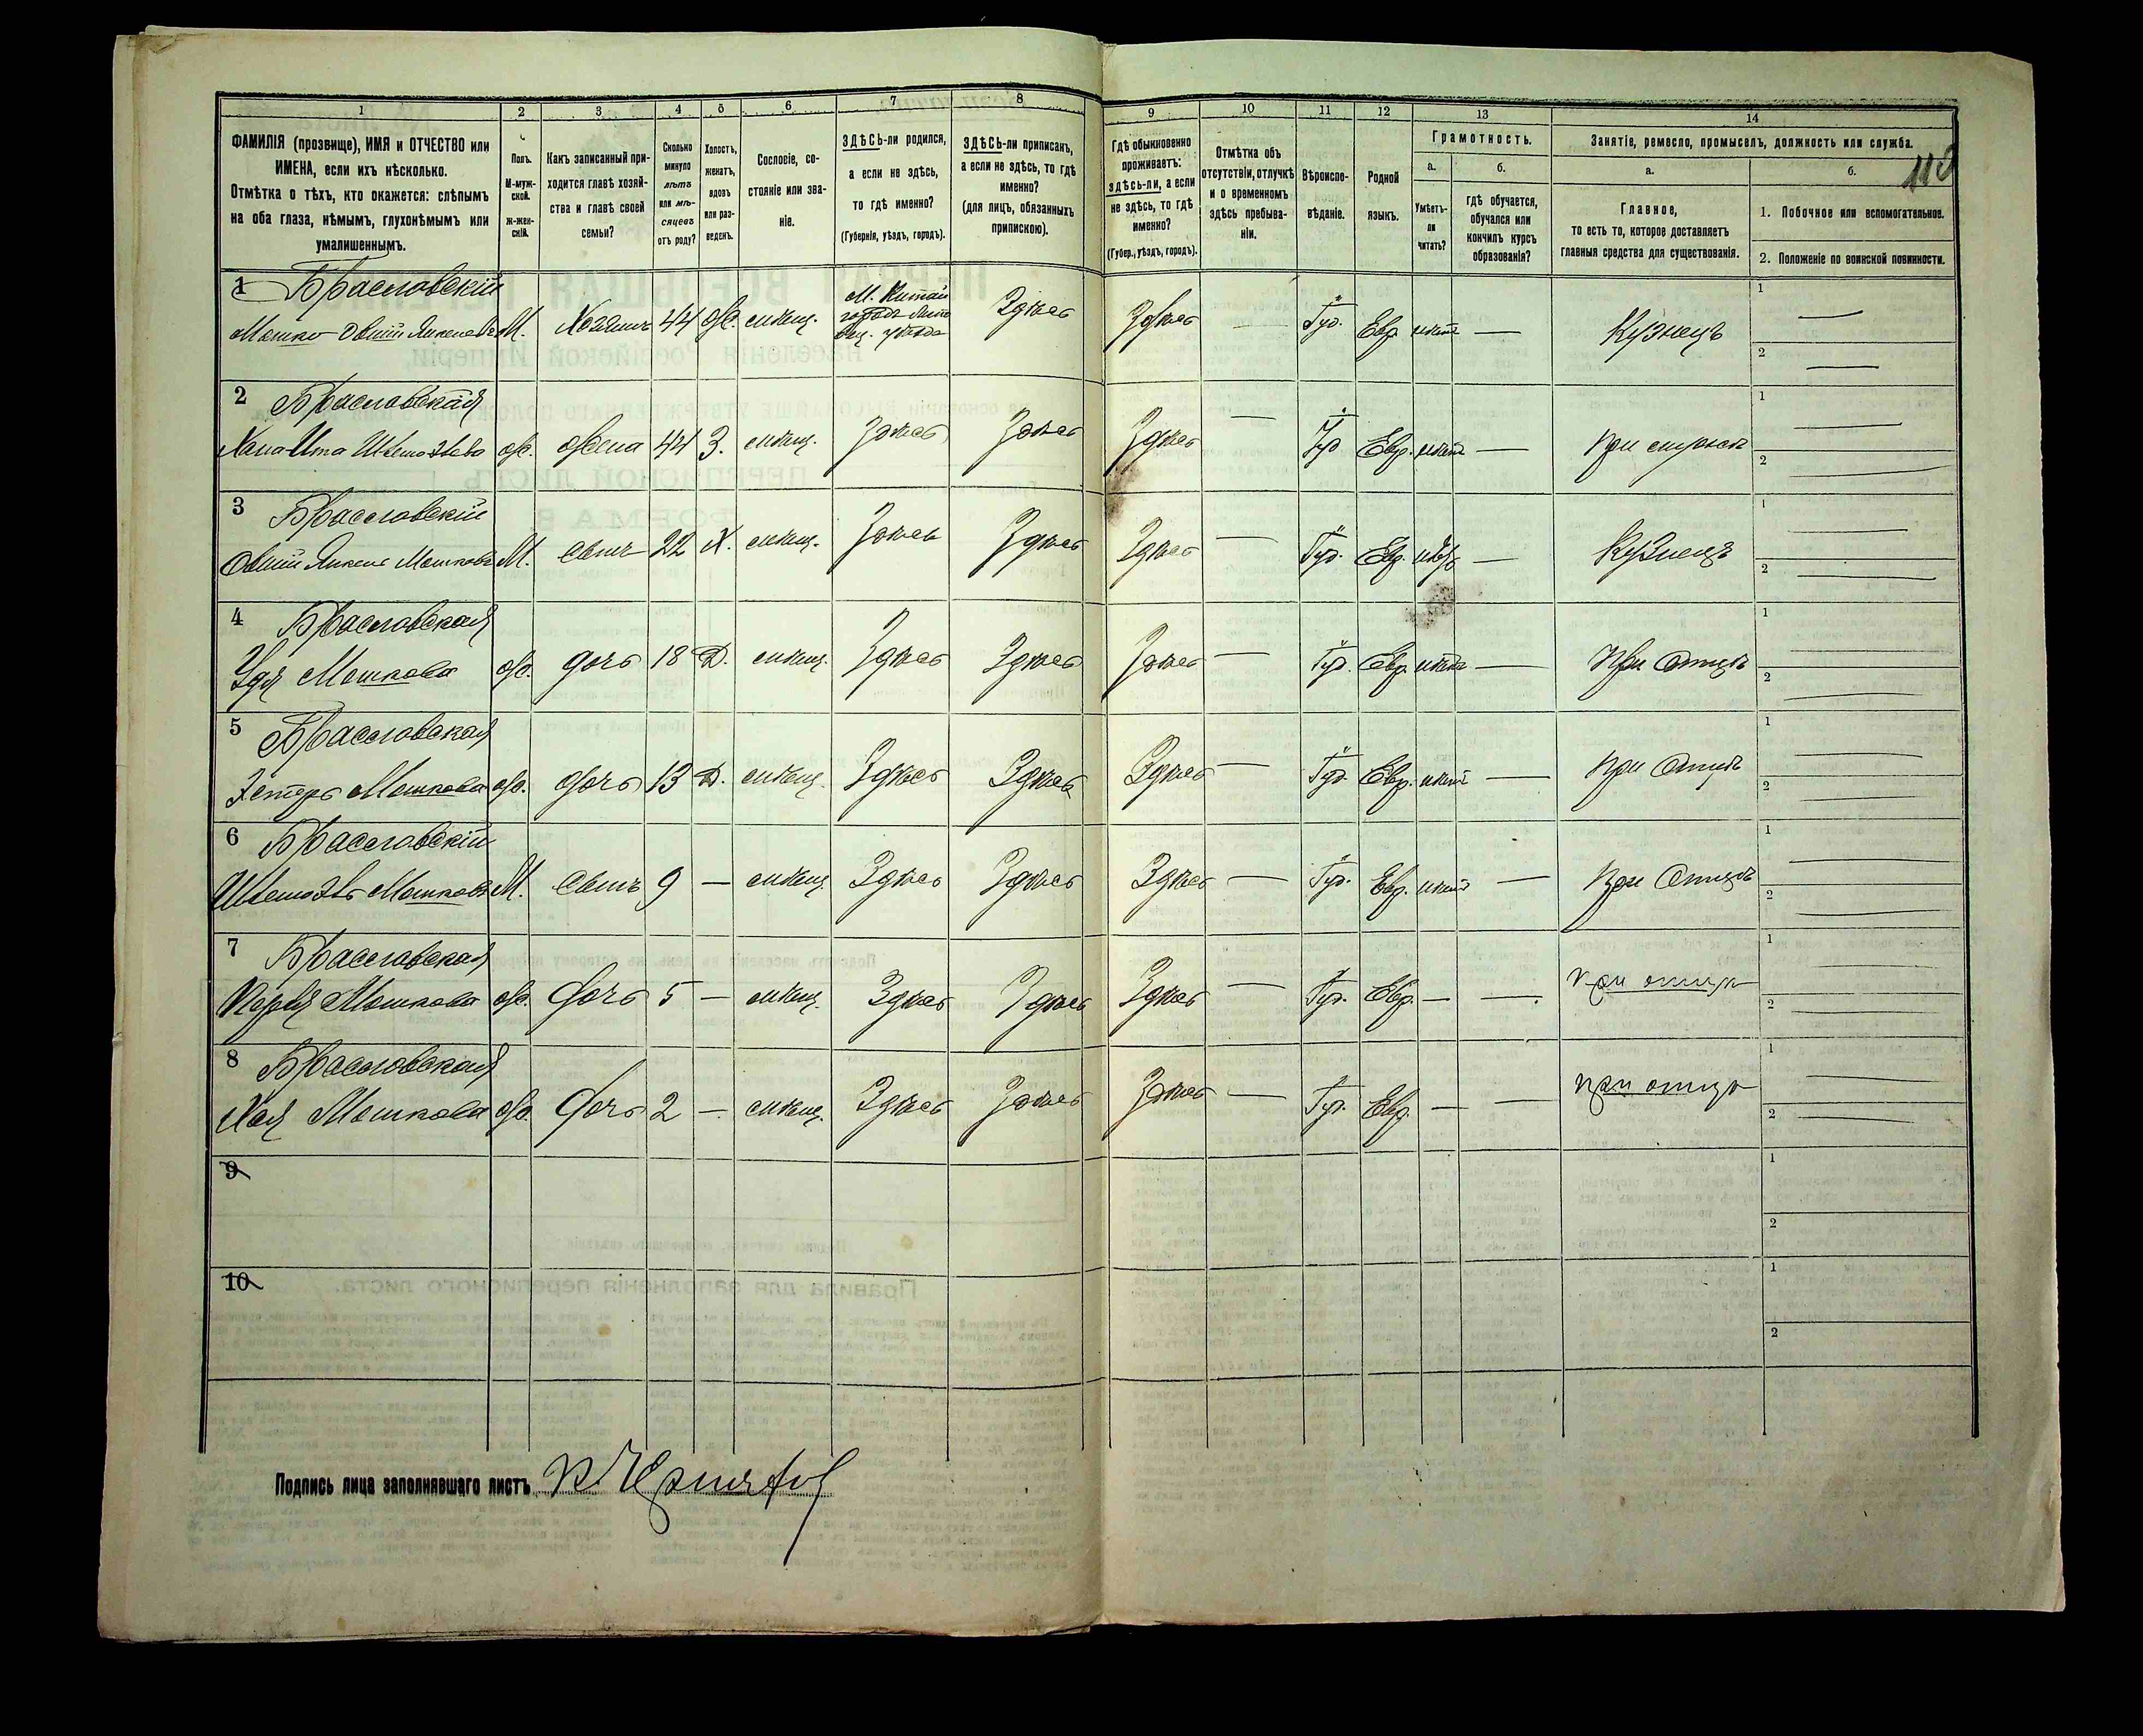 1 2 3 4 5 6 7 8 9 10 11 12 13 14
ФАМИЛІЯ (прозвище), ИМЯ и ОТЧЕСТВО или
ИМЕНА, если ихъ нѣсколько.
Отмѣтка о тѣхъ, кто окажется: слѣпымъ
на оба глаза, нѣмымъ, глухонѣмымъ или
умалишеннымъ.
Полъ.
М-муж-
ской.
ж-жен-
скій.
Какъ записанный при-
ходится главѣ хозяй-
ства и главѣ своей
семьи?
Сколько
минуло
лѣтъ
или мѣ-
сяцевъ
отъ роду?
Холостъ,
женатъ,
вдовъ
или раз-
веденъ.
Сословіе, со-
стояніе или зва-
ніе.
ЗДѢСЬ-ли родился,
а если не здѣсь,
то гдѣ именно?
(Губернія, уѣздъ, городъ).
ЗДѢСЬ-ли приписанъ,
а если не здѣсь, то гдѣ
именно?
(для лицъ, обязанныхъ
припискою).
Гдѣ обыкновенно
проживаетъ:
здѣсь-ли, а если
не здѣсь, то гдѣ
именно?
(Губер., уѣздъ, городъ).
Отмѣтка объ
отсутствіи, отлучкѣ
и о временномъ
здѣсь пребыва-
ніи.
Вѣроиспо-
вѣданіе.
Родной
языкъ.
Грамотность.
а.
Умѣетъ-
ли
читать?
б.
гдѣ обучается,
обучался или
кончилъ курсъ
образованія?
Занятіе, ремесло, промыселъ, должность или служба.
а.
Главное,
то есть то, которое доставляетъ
главныя средства для существованія.
б.
1. Побочное или вспомогательное.
2. Положеніе по воинской повинности.
1 Брасловскій
Мошко М. Хозяинъ 44 ж. мѣщ. Здѣсь Здѣсь — Іуд. Евр. нѣтъ — Кузнецъ 1 — 2 —
М. Китай
городъ
уѣзда
2 Брасловская
Хана ж. жена 44 З. мѣщ. Здѣсь Здѣсь Здѣсь — Іуд. Евр. нѣтъ — При мужѣ 1 — 2 —
3 Брасловскій
Мошковъ М. сынъ 22 Х. мѣщ. Здѣсь Здѣсь Здѣсь — Іуд. Евр. — Кузнецъ 1 — 2 —
4 Брасловская
Удя Мошкова ж. дочь 18 Д. мѣщ. Здѣсь Здѣсь Здѣсь — Іуд. Евр. нѣтъ — При отцѣ 1 — 2 —
5 Брасловская
Эстеръ Мошкова ж. дочь 13 Д. мѣщ. Здѣсь Здѣсь Здѣсь — Іуд. Евр. нѣтъ — При отцѣ 1 — 2 —
6 Брасловскій
Мошковъ М. сынъ 9 — мѣщ. Здѣсь Здѣсь Здѣсь — Іуд. Евр. нѣтъ — При отцѣ 1 — 2 —
7 Брасловская
Мошкова ж. дочь 5 — мѣщ. Здѣсь Здѣсь Здѣсь — Іуд. Евр. — — При отцѣ 1 — 2 —
8 Брасловская
Хая Мошкова ж. дочь 2 — мѣщ. Здѣсь Здѣсь Здѣсь — Іуд. Евр. — — При отцѣ 1 — 2 —
9 1 2
10 1 2
Подпись лица заполнявшаго листъ